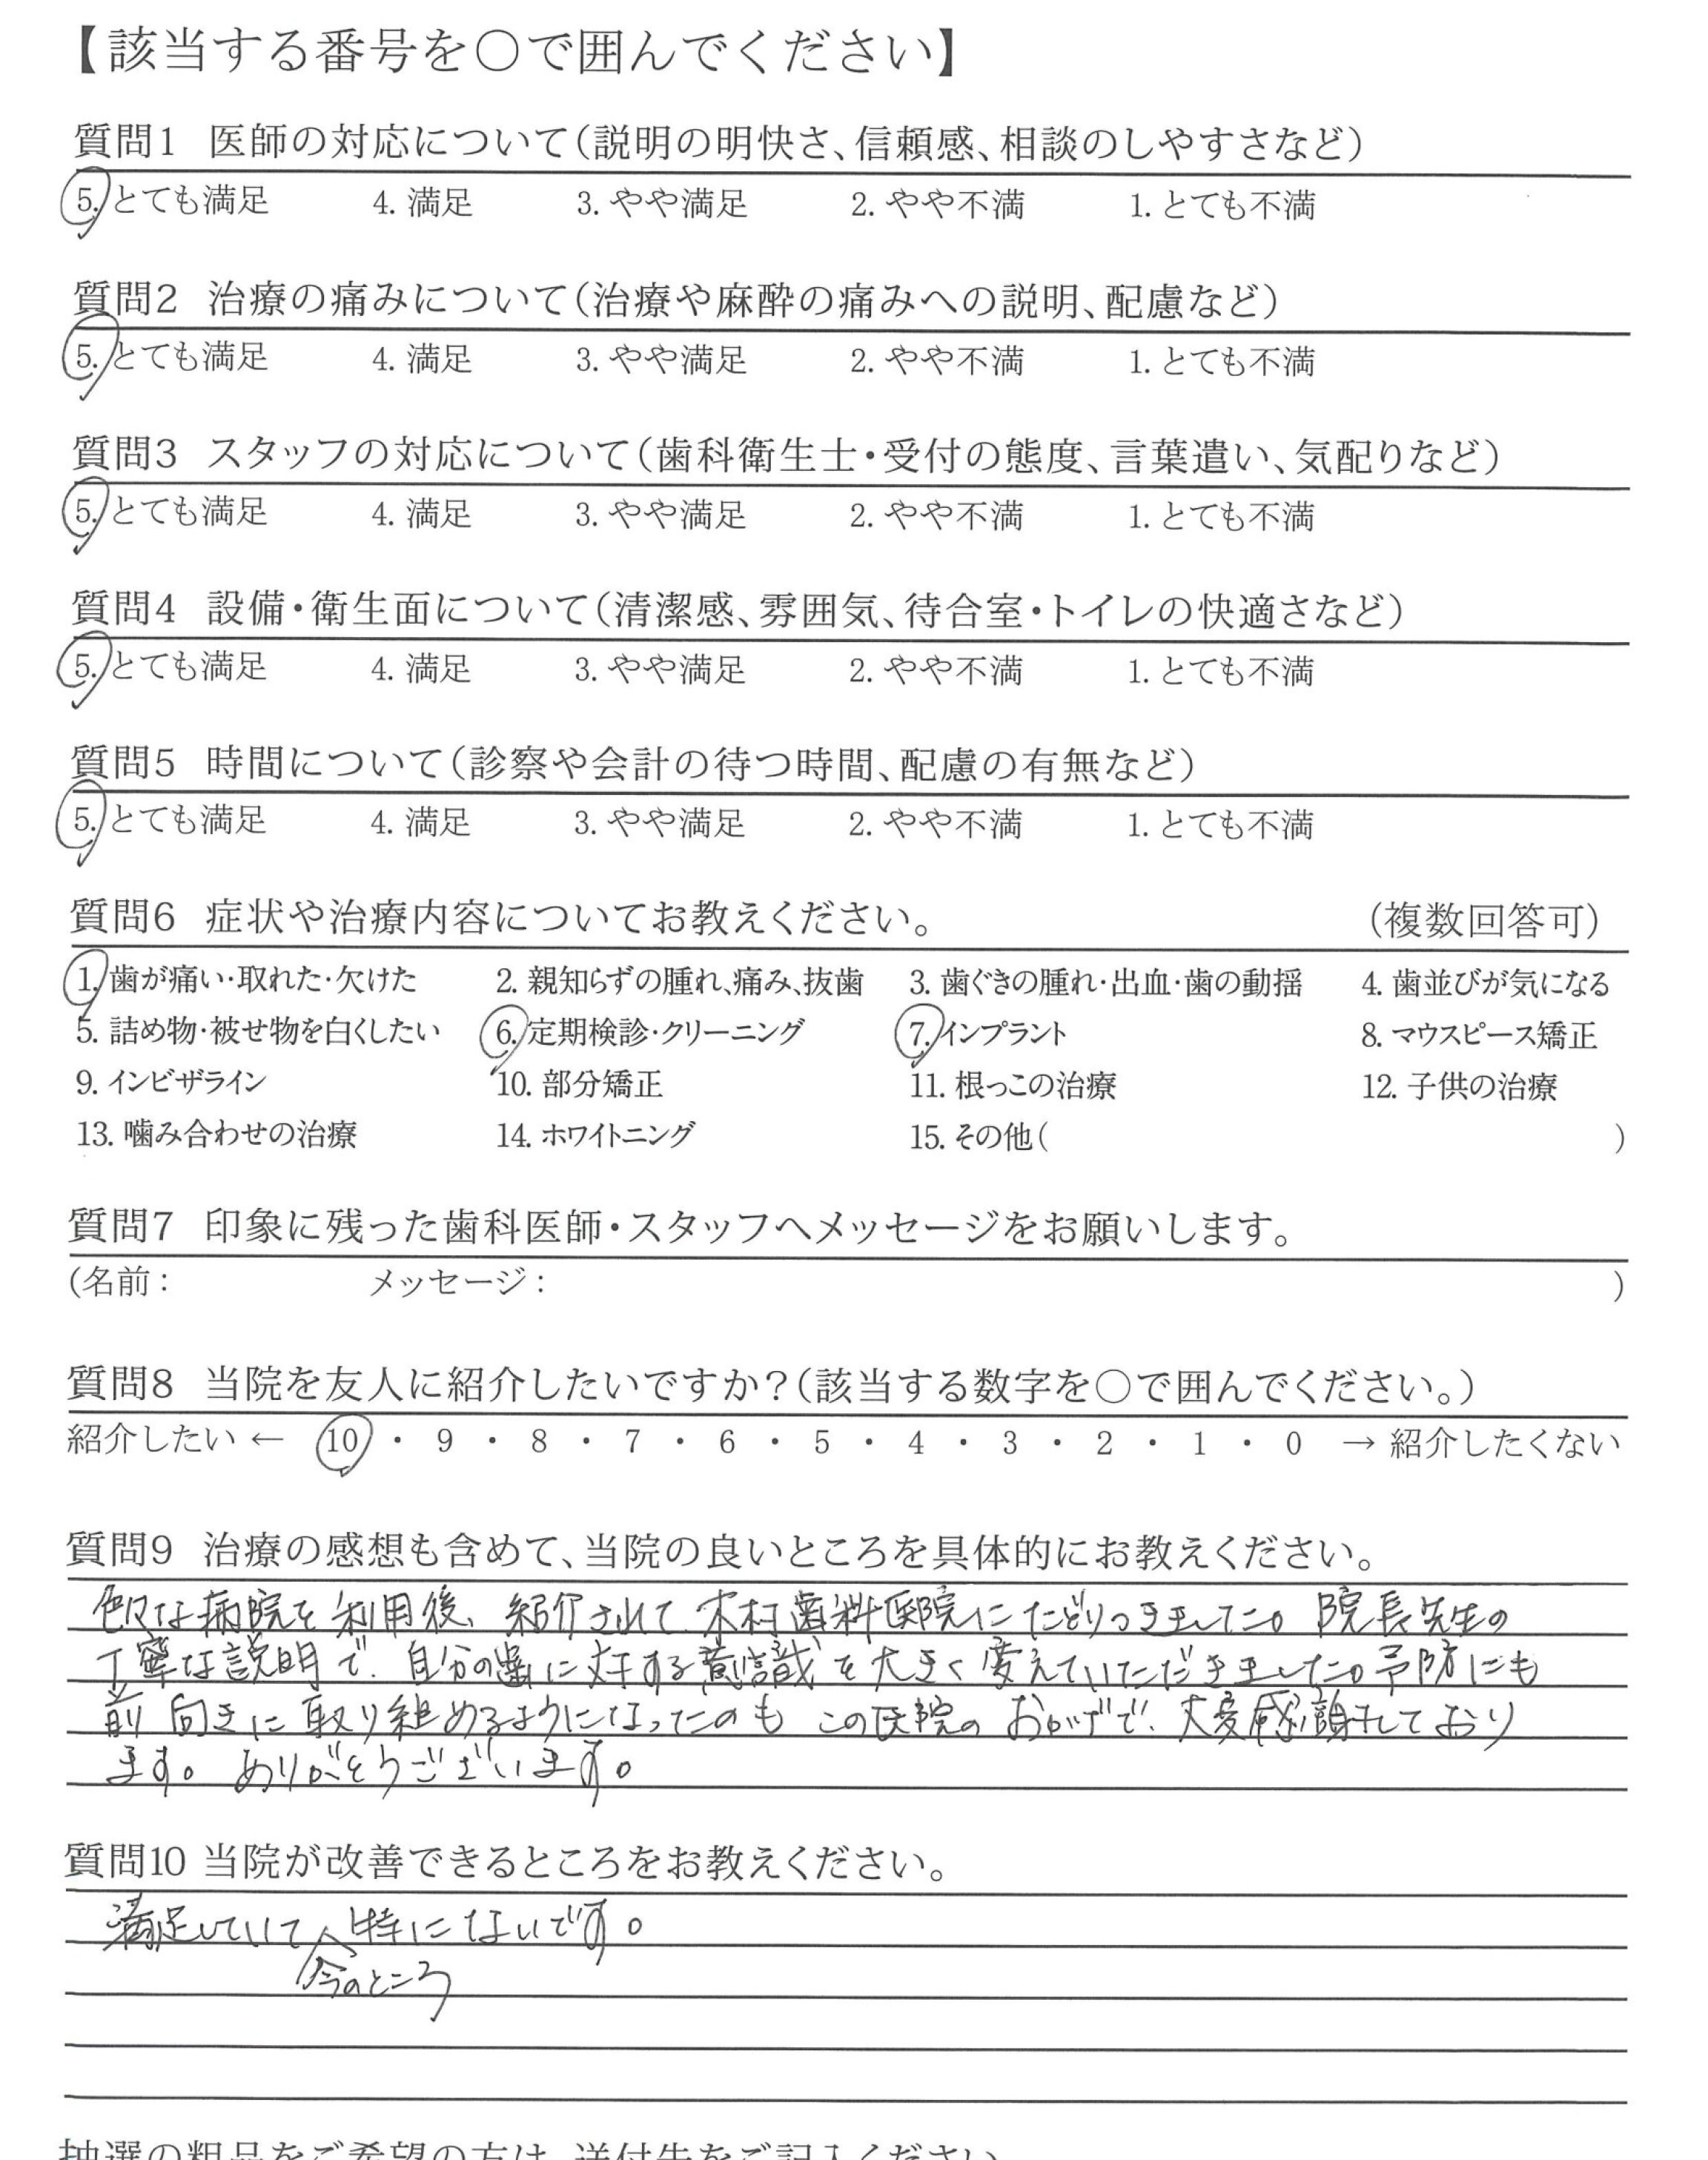 【該当する番号を○で囲んでください】
質問1 医師の対応について(説明の明快さ、信頼感、相談のしやすさなど)
5. とても満足 4. 満足 3. やや満足 2. やや不満 1. とても不満
質問2 治療の痛みについて(治療や麻酔の痛みへの説明、配慮など)
5. とても満足 4. 満足 3. やや満足 2. やや不満 1. とても不満
質問3 スタッフの対応について(歯科衛生士・受付の態度、言葉遣い、気配りなど)
5. とても満足 4. 満足 3. やや満足 2. やや不満 1. とても不満
質問4 設備・衛生面について(清潔感、雰囲気、待合室・トイレの快適さなど)
5. とても満足 4. 満足 3. やや満足 2. やや不満 1. とても不満
質問5 時間について(診察や会計の待つ時間、配慮の有無など)
5. とても満足 4. 満足 3. やや満足 2. やや不満 1. とても不満
質問6 症状や治療内容についてお教えください。 (複数回答可)
1. 歯が痛い・取れた・欠けた 2. 親知らずの腫れ、痛み、抜歯 3. 歯ぐきの腫れ・出血・歯の動揺 4. 歯並びが気になる
5. 詰め物・被せ物を白くしたい 6. 定期検診・クリーニング 7. インプラント 8. マウスピース矯正
9. インビザライン 10. 部分矯正 11. 根っこの治療 12. 子供の治療
13. 噛み合わせの治療 14. ホワイトニング 15. その他( )
質問7 印象に残った歯科医師・スタッフへメッセージをお願いします。
(名前: メッセージ: )
質問8 当院を友人に紹介したいですか?(該当する数字を○で囲んでください。)
紹介したい ← 10 ・ 9 ・ 8 ・ 7 ・ 6 ・ 5 ・ 4 ・ 3 ・ 2 ・ 1 ・ 0 → 紹介したくない
質問9 治療の感想も含めて、当院の良いところを具体的にお教えください。
色々な病院を利用後、紹介されて木村歯科医院にたどりつきました。院長先生の
丁寧な説明で、自分の歯に対する意識を大きく変えていただきました。予防にも
前向きに取り組めるようになったのもこの医院のおかげで、大変感謝しており
ます。ありがとうございます。
質問10 当院が改善できるところをお教えください。
満足していて特にないです。
今のところ
抽選の粗品をご希望の方は、送付先をご記入ください